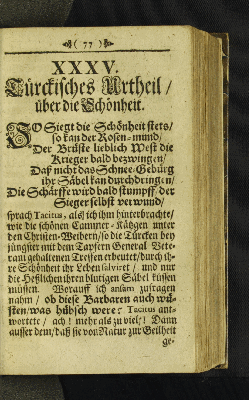 ( 77 )
XXXV.
Türckisches Urtheil /
über die Schönheit.
SO Siegt die Schönheit stets /
so kan der Rosen-mund /
Der Brüste lieblich West die
Krieger bald bezwingen /
Daß nicht das Schnee-Gebürg
ihr Säbel kan durchdringen /
Die Schärffe wird bald stumpff der
Sieger selbst verwund /
sprach Tacitus, als ich ihm hinterbrachte /
wie die schönen Cammer-Kätzgen unter
den Christen-Weibern / so die Türcken bey
jüngster mit dem Tapfern General Vete-
rani gehaltenen Treffen erbeutet / durch ih-
re Schönheit ihr Leben salviret / und nur
die Heßlichen ihren blutigen Säbel küssen
müssen. Worauff ich anlaß zufragen
nahm / ob diese Barbaren auch wü-
sten / was hübsch were: Tacitus ant-
wortete / ach! mehr als zu viel! Dann
ausser dem / daß sie von Natur zur Geilheit
ge-